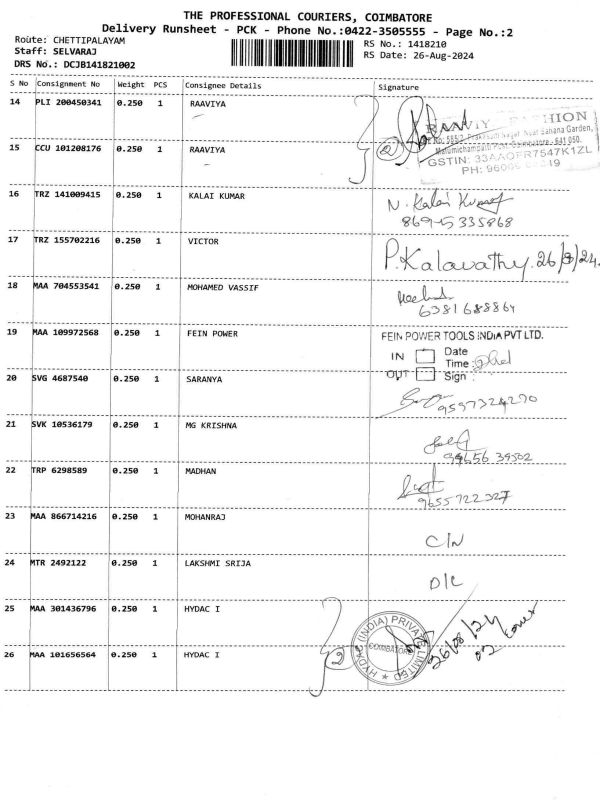 THE PROFESSIONAL COURIERS, COIMBATORE
Delivery Runsheet - PCK - Phone No.:0422-3505555 - Page No.:2
Route: CHETTIPALAYAM
RS No.: 1418210
Staff: SELVARAJ
RS Date: 26-Aug-2024
DRS No.: DCJB141821002
S No Consignment No Weight PCS Consignee Details Signature
14 PLI 200450341 0.250 1 RAAVIYA
15 CCU 101208176 0.250 1 RAAVIYA
2
RAAVIY FASHION
GSTIN: 33AAOFR7547K1ZL
16 TRZ 141009415 0.250 1 KALAI KUMAR
N. Kalai Kumar
86945 335868
17 TRZ 155702216 0.250 1 VICTOR
P. Kalavathy. 26/8/24.
18 MAA 704553541 0.250 1 MOHAMED VASSIF
6381688864
19 MAA 109972568 0.250 1 FEIN POWER
FEIN POWER TOOLS INDIA PVT LTD.
IN Date
Time :
OUT Sign :
20 SVG 4687540 0.250 1 SARANYA
9597324270
21 SVK 10536179 0.250 1 MG KRISHNA
22 TRP 6298589 0.250 1 MADHAN
9655722327
23 MAA 866714216 0.250 1 MOHANRAJ
C/N
24 MTR 2492122 0.250 1 LAKSHMI SRIJA
D/L
25 MAA 301436796 0.250 1 HYDAC I
26 MAA 101656564 0.250 1 HYDAC I
2
HYDAC (INDIA) PRIVATE LIMITED
COIMBATORE
26/08/24
02 Cover